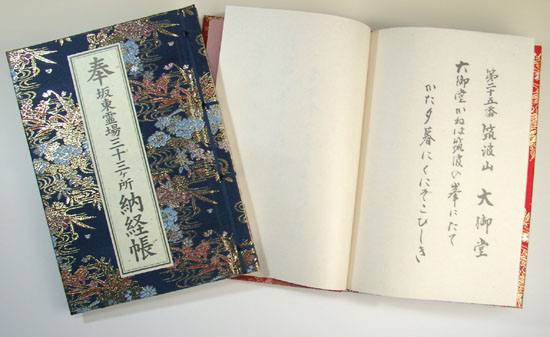 奉 坂東霊場三十三ヶ所 納経帳
第二十五番 筑波山 大御堂
大御堂かねは筑波の峯にたて
かた夕暮にくにぞこひしき